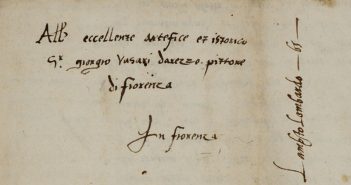 All eccellente artefice et istorico
Sr giorgio Vasari darezzo pittore
di fiorenza
In fiorenza
Lombardo — 65 —